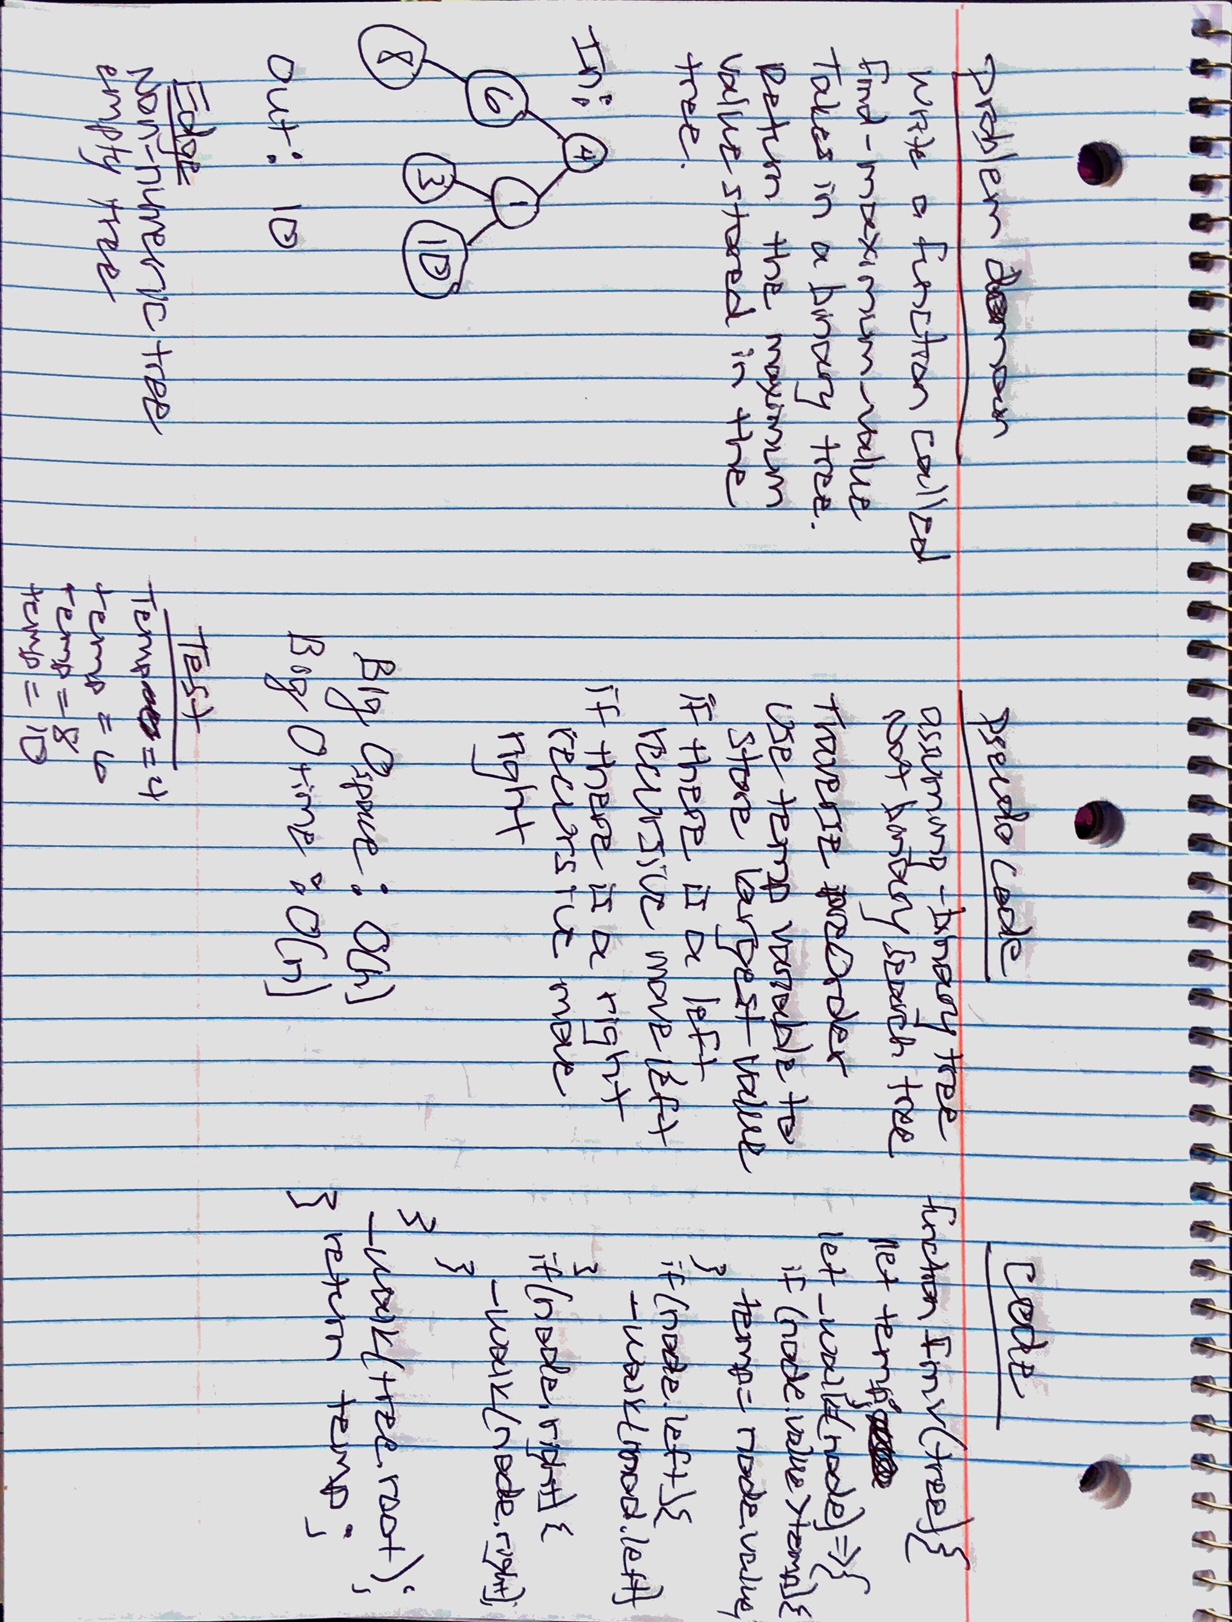 Problem domain
write a function called
find-maximum-value
Takes in a binary tree.
Return the maximum
value stored in the
tree.
In:
4
6
1
8
3
10
Out: 10
Edge
Non-numeric tree
empty tree
pseudo code
assuming - binary tree
not binary search tree
traverse preOrder
use temp variable to
store largest value
if there is a left
recursive move left
if there is a right
recursive move
right
Big O space: O(h)
Big O time: O(n)
Test
Temp = 4
temp = 6
temp = 8
temp = 10
Code
function Fmv(tree){
let temp;
let _walk=(node)=>{
if(node.value>temp){
temp=node.value;
}
if(node.left){
_walk(nod.left)
}
if(node.right){
_walk(node.right);
}
}
_walk(tree.root);
return temp;
}